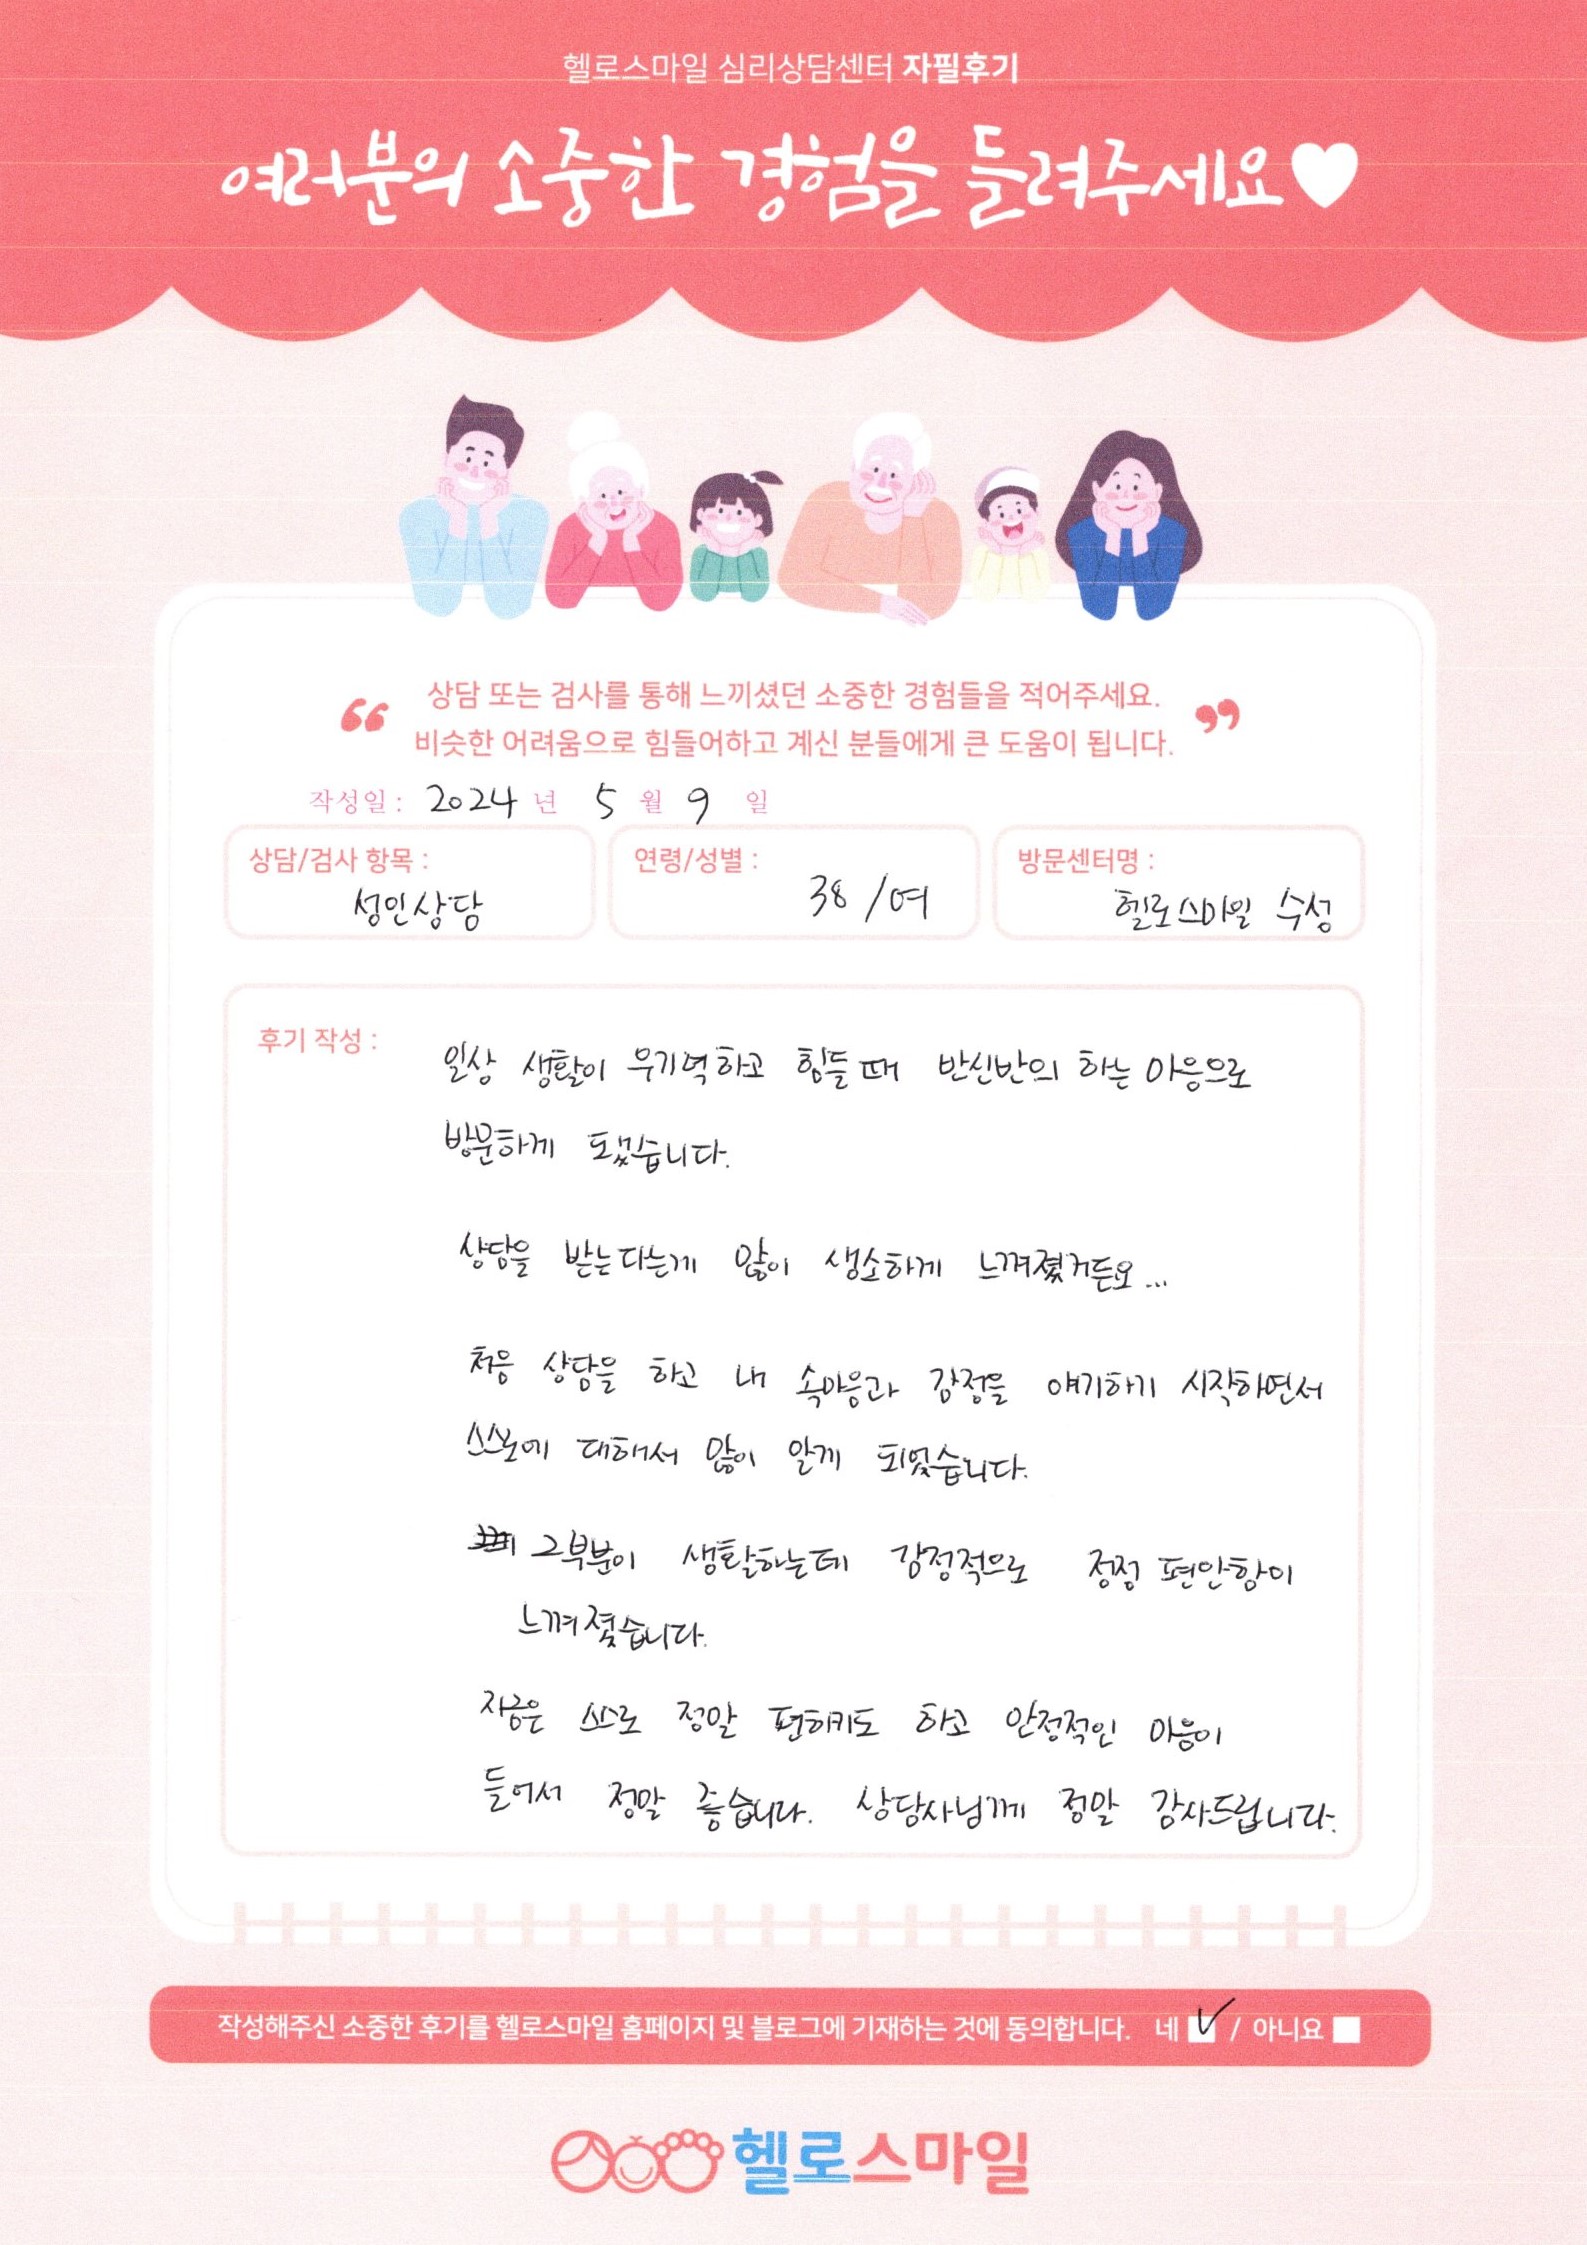 헬로스마일 심리상담센터 자필후기
여러분의 소중한 경험을 들려주세요♥
“ 상담 또는 검사를 통해 느끼셨던 소중한 경험들을 적어주세요. ”
비슷한 어려움으로 힘들어하고 계신 분들에게 큰 도움이 됩니다.
작성일 : 2024 년 5 월 9 일
상담/검사 항목 : 성인상담
연령/성별 : 38 / 여
방문센터명 : 헬로스마일 수성
후기 작성 :
일상 생활이 무기력하고 힘들 때 반신반의 하는 마음으로
방문하게 됬습니다.
상담을 받는다는게 많이 생소하게 느껴졌거든요...
처음 상담을 하고 내 속마음과 감정을 얘기하기 시작하면서
스스로에 대해서 많이 알게 되었습니다.
그부분이 생활하는데 감정적으로 점점 편안함이
느껴졌습니다.
지금은 스스로 정말 편하기도 하고 안정적인 마음이
들어서 정말 좋습니다. 상담사님께 정말 감사드립니다.
작성해주신 소중한 후기를 헬로스마일 홈페이지 및 블로그에 기재하는 것에 동의합니다. 네 ✓ / 아니요
헬로스마일